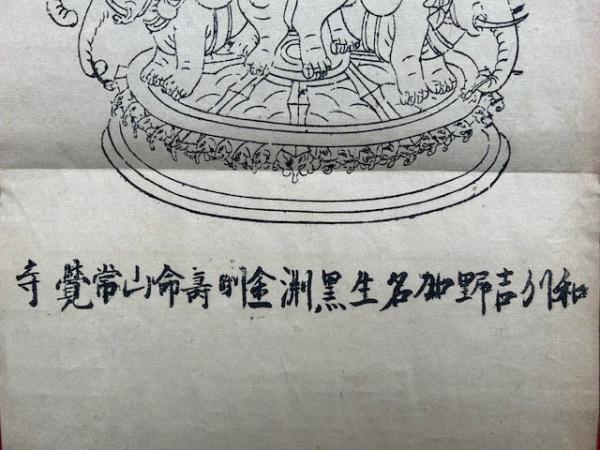 和州吉野加名生黒渕金剛壽命山常覺寺